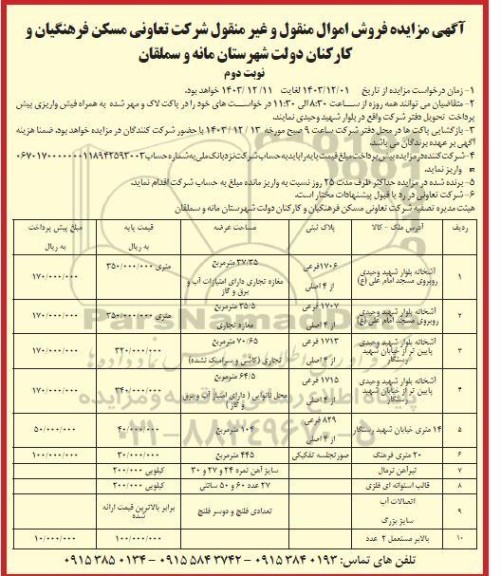 آگهی مزایده فروش اموال منقول و غیر منقول شرکت تعاونی مسکن فرهنگیان و
کارکنان دولت شهرستان مانه و سملقان
نوبت دوم
۱- زمان درخواست مزایده از تاریخ ۱۴۰۳/۱۲/۰۱ لغایت ۱۴۰۳/۱۲/۱۱ خواهد بود.
۲- متقاضیان می توانند همه روزه از ساعت ۸:۳۰ الی ۱۱:۳۰ در خواست های خود را در پاکت لاک و مهر شده به همراه فیش واریزی پیش
پرداخت تحویل دفتر شرکت واقع در بلوار شهید وحیدی نمایند.
۳- بازگشایی پاکت ها در محل دفتر شرکت ساعت ۹ صبح مورخه ۱۴۰۳/۱۲/۱۳ با حضور شرکت کنندگان در مزایده خواهد بود. ضمنا هزینه
آگهی بر عهده برندگان می باشد.
۴- شرکت کننده در مزایده پیش پرداخت مبلغ قیمت پایه را باید به حساب شرکت نزد بانک ملی به شماره حساب
واریز نماید.
۵- برنده شده در مزایده حداکثر ظرف مدت ۲۵ روز نسبت به واریز مانده مبلغ به حساب شرکت اقدام نماید.
۶- شرکت تعاونی در رد یا قبول پیشنهادات مختار است.
هیئت مدیره تصفیه شرکت تعاونی مسکن فرهنگیان و کارکنان دولت شهرستان مانه و سملقان
ردیف آدرس ملک - کالا پلاک ثبتی مساحت عرضه قیمت پایه به ریال مبلغ پیش پرداخت به ریال
۱ آشخانه بلوار شهید وحیدی روبروی مسجد امام علی (ع) ۱۷۰۶ فرعی از ۴ اصلی ۳۷/۳۵ مترمربع مغازه تجاری دارای امتیازات آب و برق و گاز متری ۳۵۰/۰۰۰/۰۰۰ ۱۷۰/۰۰۰/۰۰۰
۲ آشخانه بلوار شهید وحیدی روبروی مسجد امام علی (ع) ۱۷۰۷ فرعی از ۴ اصلی ۳۵/۵ مترمربع مغازه تجاری متری ۳۵۰/۰۰۰/۰۰۰ ۱۷۰/۰۰۰/۰۰۰
۳ آشخانه بلوار شهید وحیدی پایین تر از خیابان شهید رستگار ۱۷۱۳ فرعی از ۴ اصلی ۷۰/۶۵ مترمربع تجاری (کاشی و سرامیک نشده) ۳۲۰/۰۰۰/۰۰۰ ۱۷۰/۰۰۰/۰۰۰
۴ آشخانه بلوار شهید وحیدی پایین تر از خیابان شهید رستگار ۱۷۱۵ فرعی از ۴ اصلی ۶۴/۵ مترمربع محل نانوایی (دارای امتیاز آب و برق و گاز) ۳۴۰/۰۰۰/۰۰۰ ۱۷۰/۰۰۰/۰۰۰
۵ ۱۴ متری خیابان شهید رستگار ۸۲۹ فرعی از ۴ اصلی ۱۰۴ مترمربع ۴۰/۰۰۰/۰۰۰ ۵۰/۰۰۰/۰۰۰
۶ ۲۰ متری فرهنگ صورتجلسه تفکیکی ۴۴۵ مترمربع ۳۰/۰۰۰/۰۰۰ ۱۰۰/۰۰۰/۰۰۰
۷ تیرآهن نرمال سایز آهن نمره ۲۴ و ۲۷ و ۳۰ کیلویی ۲۰۰/۰۰۰
۸ قالب استوانه ای فلزی ۲۷ عدد ۶۰ و ۵۰ سانتی کیلویی ۲۰۰/۰۰۰
۹ اتصالات آب سایز بزرگ تعدادی فلنچ و دوسر فلنچ برابر بالاترین قیمت ارائه شده
۱۰ بالابر مستعمل ۲ عدد ۱۰۰/۰۰۰/۰۰۰ ۱۰/۰۰۰/۰۰۰
تلفن های تماس: ۰۱۹۳ ۳۸۴ ۰۹۱۵ - ۳۷۴۲ ۵۸۴ ۰۹۱۵ - ۰۱۳۴ ۳۸۵ ۰۹۱۵
ParsNamadData
۰۲۱-۸۸۳۴۹۶۷۰-۵